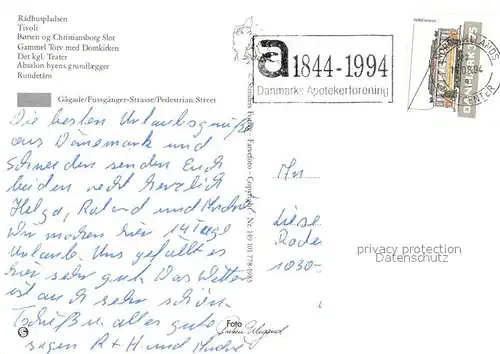 Rådhuspladsen
Tivoli
Børsen og Christiansborg Slot
Gammel Torv med Domkirken
Det kgl. Teater
Absalon byens grundlægger
Rundetårn
Gågade/Fussgänger-Strasse/Pedestrian Street
a 1844-1994
Danmarks Apotekerforening
KØBENHAVN
DANMARK 3.75
CENTER
Die besten Urlaubsgrüße
aus Dänemark und
Schweden senden Euch
beiden recht herzlich
Helga, Roland und André
Wir machen hier 14 Tage
Urlaub. Uns gefällt es
hier sehr gut. Das Wetter
ist auch sehr schön.
Tschüß u. alles gute
sagen R + H und André
An
1030-
privacy protection
Datenschutz
Foto